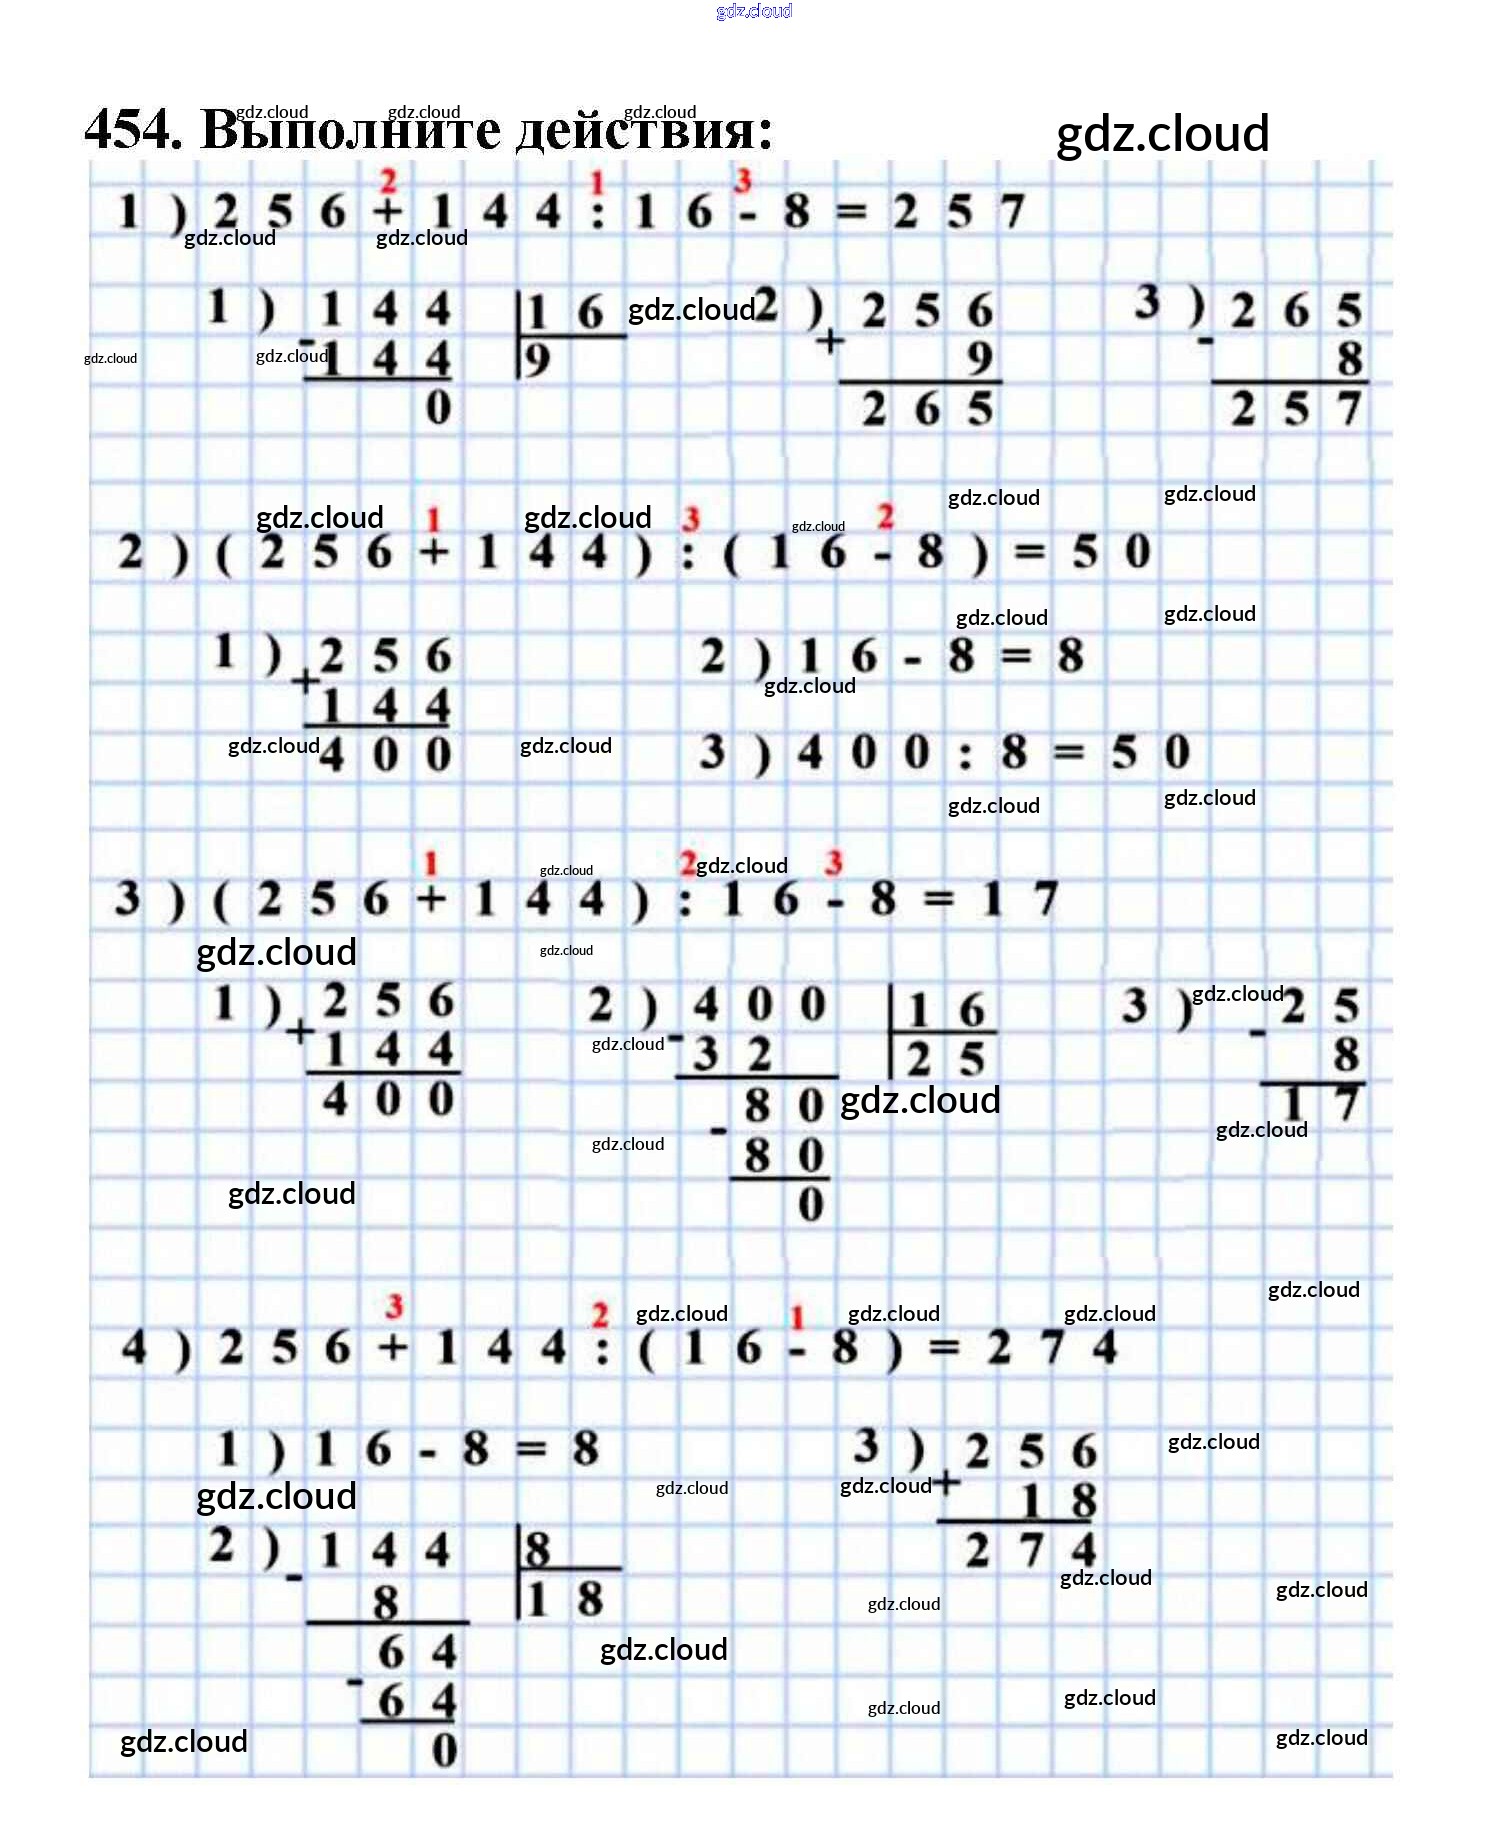 gdz.cloud
gdz.cloud gdz.cloud gdz.cloud
454. Выполните действия: gdz.cloud
2 1 3
1)256+144:16-8=257
gdz.cloud gdz.cloud
1) 144 16 gdz.cloud 2) 256 3) 265
- + -
gdz.cloud gdz.cloud 144 9 9 8
0 265 257
gdz.cloud gdz.cloud
gdz.cloud 1 gdz.cloud 3 gdz.cloud 2
2)(256+144):(16-8)=50
gdz.cloud gdz.cloud
1) 256 2)16-8=8
+ gdz.cloud
144
gdz.cloud 400 gdz.cloud 3)400:8=50
gdz.cloud gdz.cloud
1 gdz.cloud 2 gdz.cloud 3
3)(256+144):16-8=17
gdz.cloud gdz.cloud
1) 256 2) 400 16 3) gdz.cloud 25
+ - -
144 gdz.cloud 32 25 8
400 80 gdz.cloud 17
- gdz.cloud
gdz.cloud 80
gdz.cloud 0
gdz.cloud
3 2 gdz.cloud 1 gdz.cloud gdz.cloud
4)256+144:(16-8)=274
1)16-8=8 3) 256 gdz.cloud
gdz.cloud gdz.cloud gdz.cloud +
18
2) 144 8 274
- gdz.cloud gdz.cloud
8 18 gdz.cloud
64 gdz.cloud
-
64 gdz.cloud gdz.cloud
gdz.cloud 0 gdz.cloud